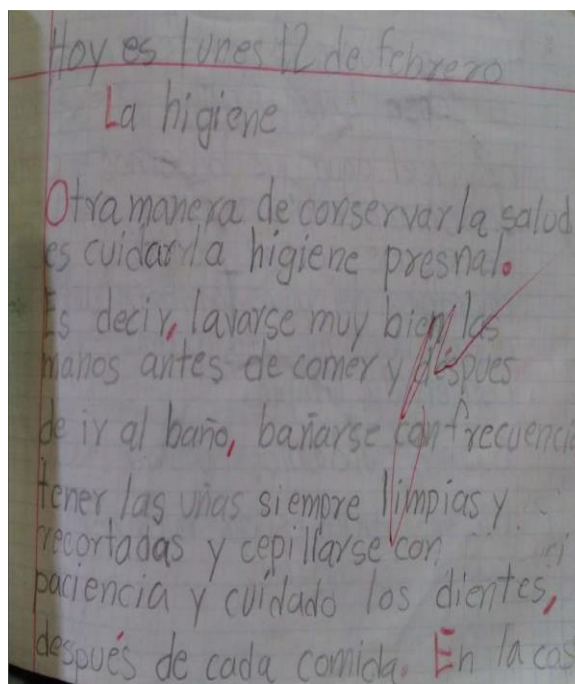 Hoy es lunes 12 de febrero
La higiene
Otra manera de conservar la salud
es cuidar la higiene presnal.
Es decir, lavarse muy bien las
manos antes de comer y despues
de ir al baño, bañarse con frecuencia
tener las uñas siempre limpias y
recortadas y cepillarse con
paciencia y cuidado los dientes,
después de cada comida. En la cas